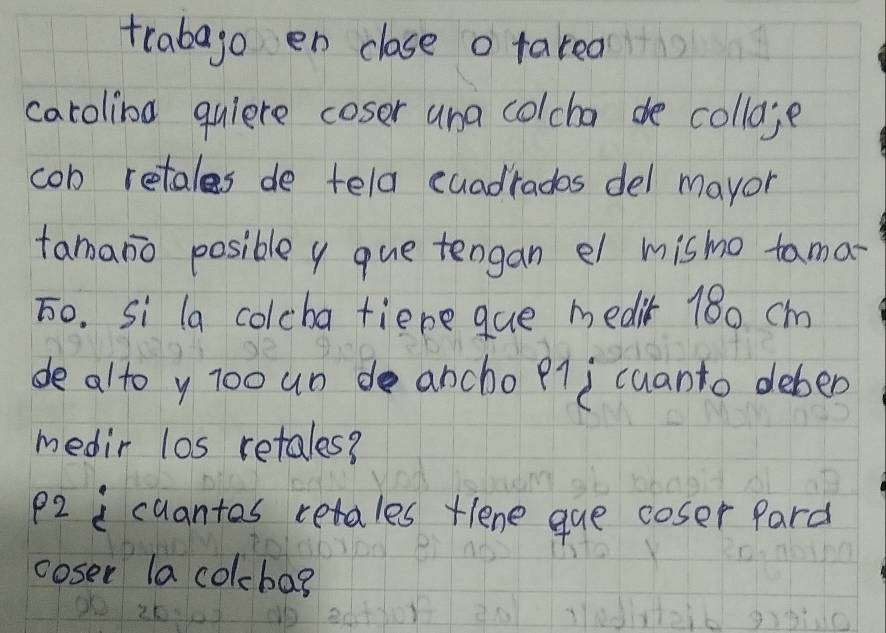 trabajo en clase o tarea
carolina quiere coser una colcha de collaje
con retales de tela cuadrados del mayor
tamaño posible y que tengan el mismo tama-
ño. si la colcha tiene que medir 180 cm
de alto y 100 un de ancho P1 ¿cuanto deben
medir los retales?
P2 ¿cuantos retales tiene que coser para
coser la colcha?